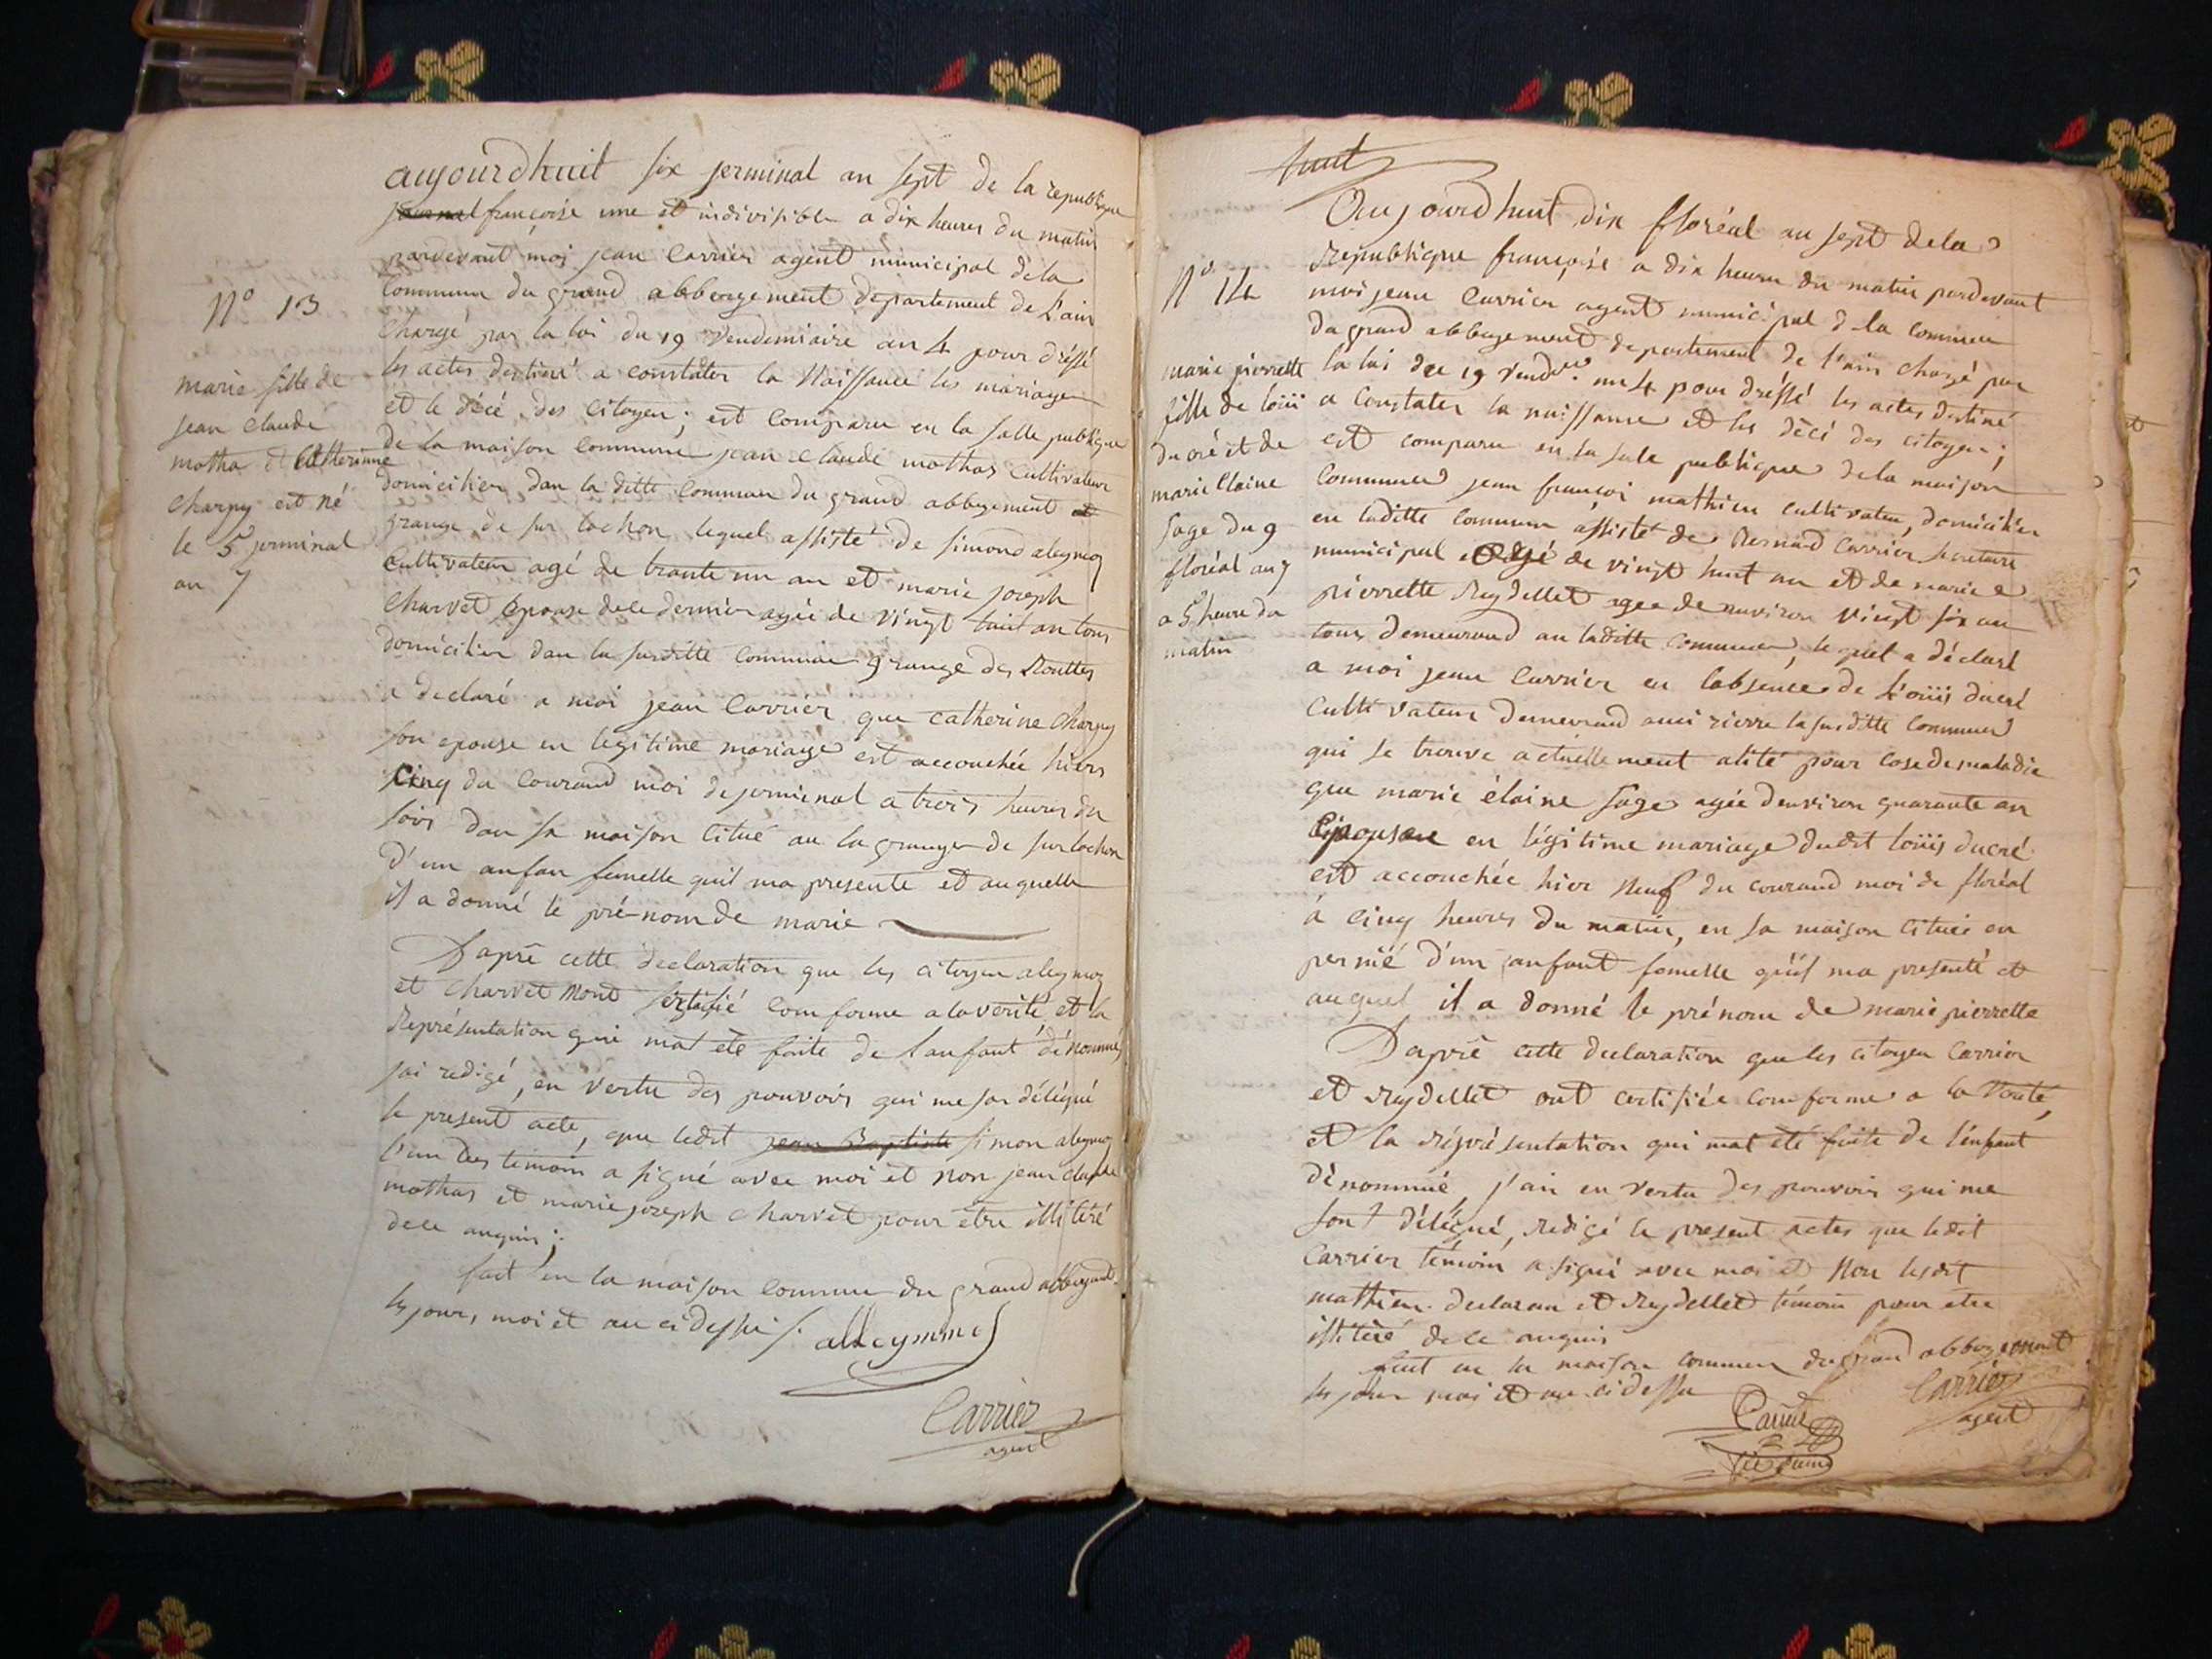 aujourdhuit six jerminal an sept de la republique
journal françoise une et indivisible a dix heures du matin
pardevant moi jean Carrier agent municipal de la
Commune du grand abbergement departement de L'ain
Chargé par la loi du 19 Vendemiaire an 4 pour dréssé
les actes destiné a constater la Naissance les mariages
et le décé des Citoyen; est Comparu en la salle publique
de la maison Commune jean claude mathas Cultivateur
domicilier dan la ditte Commune du grand abbergement et
grange de sur lochon lequel assisté de simond aleymoz
Cultivateur agé de trante un an et marie joseph
Charvet Epouse de le dernier agée de vingt huit an tous
domicilier dan la susditte commune grange des Routtes
a declaré a moi jean Carrier que catherine Charpy
son epouse en legitime mariage est accouchée hiers
Cinq du Courand moi de jerminal a trois heures du
soirs dan sa maison Citué au la grange de sur lochon
D'un anfan femelle quil ma presente et auquelle
il a donné le pré-nom de marie
D'apré cette declaration que les citoyen aleymoz
et charvet mont certifié Comforme a la verité et la
Représentation qui mat été faite de l'anfant dénommé
j'ai redigé, en vertu des pouvoirs qui me son délégué
le present acte, que ledit jean Baptiste simon aleymoz
l'un des temoin a signé avec moi et non jean claude
mathas et marie joseph Charvet pour etre illitéré
de ce anquis;
fait en la maison Commune du grand abbergement
les jour, moi et an ci dessus /. alleymmoz
Carrier
agent
N° 13
marie fille de
jean claude
matha et Catherinne
Charpy est né
le 5 jerminal
an 7
huit
Aujourdhuit dix floréal an sept de la
Republique françoise a dix heures du matin pardevant
moi jean Carrier agent municipal de la commune
du grand abbergement departement de l'ain chargé par
la loi du 19 Vendre an 4 pour dréssé les actes destiné
a Constater la naissance et les décé des citoyen;
est comparu en la sale publique de la maison
Commune jean françoi mathieu cultivateur, domicilier
en laditte Commune assisté de Bernard Carrier secretaire
municipal agé de vingt huit an et de marie
pierrette Reydellet agee de nuviron vingt six an
tous demeurand au laditte Commune, le quel a déclaré
a moi jean Carrier en l'absence de Loüis ducré
Cultivateur demeurand aussi rierre la susditte Commune
qui se trouve actuellement alité pour cose de maladie
que marie élaine sage agée d'environ quarante an
Epouse en légitime mariage dudit loüis ducré
est accouchée hier Neuf du courand moi de floréal
à cinq heures du matin, en sa maison cituée en
pernié d'un anfant femelle qu'il ma presenté et
auquel il a donné le prénom de marie pierrette
D'aprè cette declaration que les citoyen Carrier
et Reydellet ont certifiée Comforme a la Verité,
et la réprésentation qui mat été faite de l'énfant
dénommé, j'ai en vertu des pouvoirs qui me
sont délégué, redigé le present actes que ledit
Carrier témoin a signé avec moi et Non lesdit
mathieu declaran et Reydellet témoin pour etre
illitéré de ce anquis
fait en la maison commun du grand abbergement
les jour moi et an ci dessu
Carrier
Carrier
agent
N° 14
marie pierrette
fille de loüi
ducré et de
marie Elaine
sage du 9
floréal an 7
a 5 heure du
matin